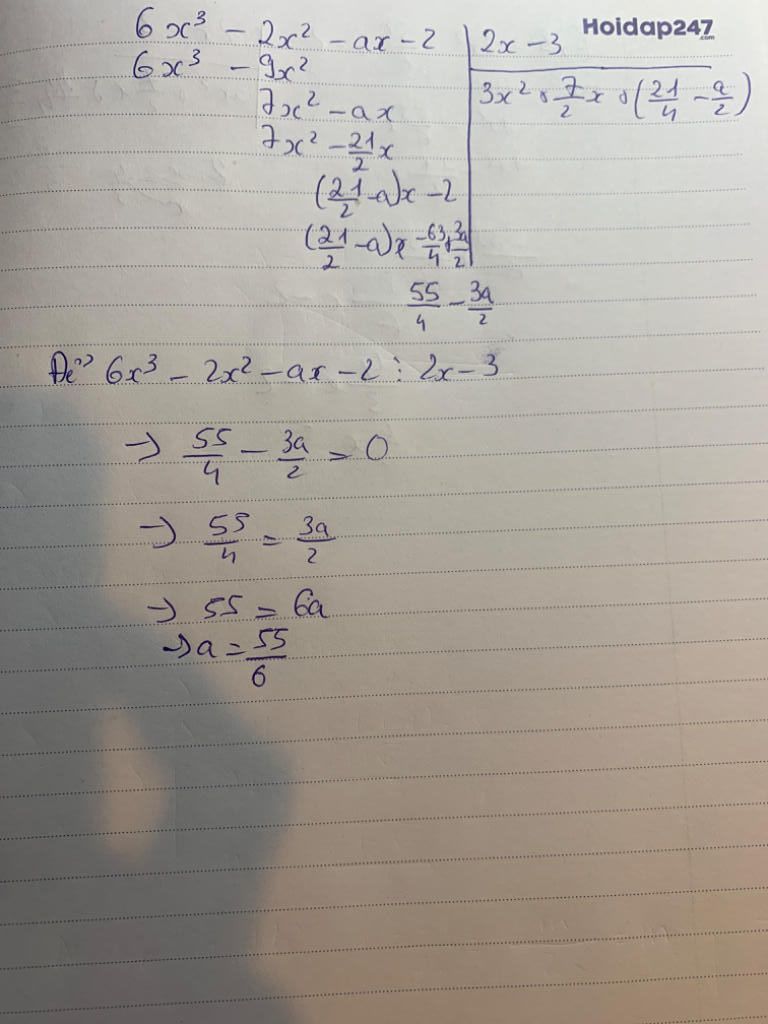 Hoidap247
.com
6x³ - 2x² - ax - 2 | 2x - 3
6x³ - 9x² | 3x² + 7/2 x + (21/4 - a/2)
7x² - ax
7x² - 21/2 x
(21/2 - a)x - 2
(21/2 - a)x - 63/4 + 3a/2
55/4 - 3a/2
Để 6x³ - 2x² - ax - 2 ⋮ 2x - 3
→ 55/4 - 3a/2 = 0
→ 55/4 = 3a/2
→ 55 = 6a
→ a = 55/6